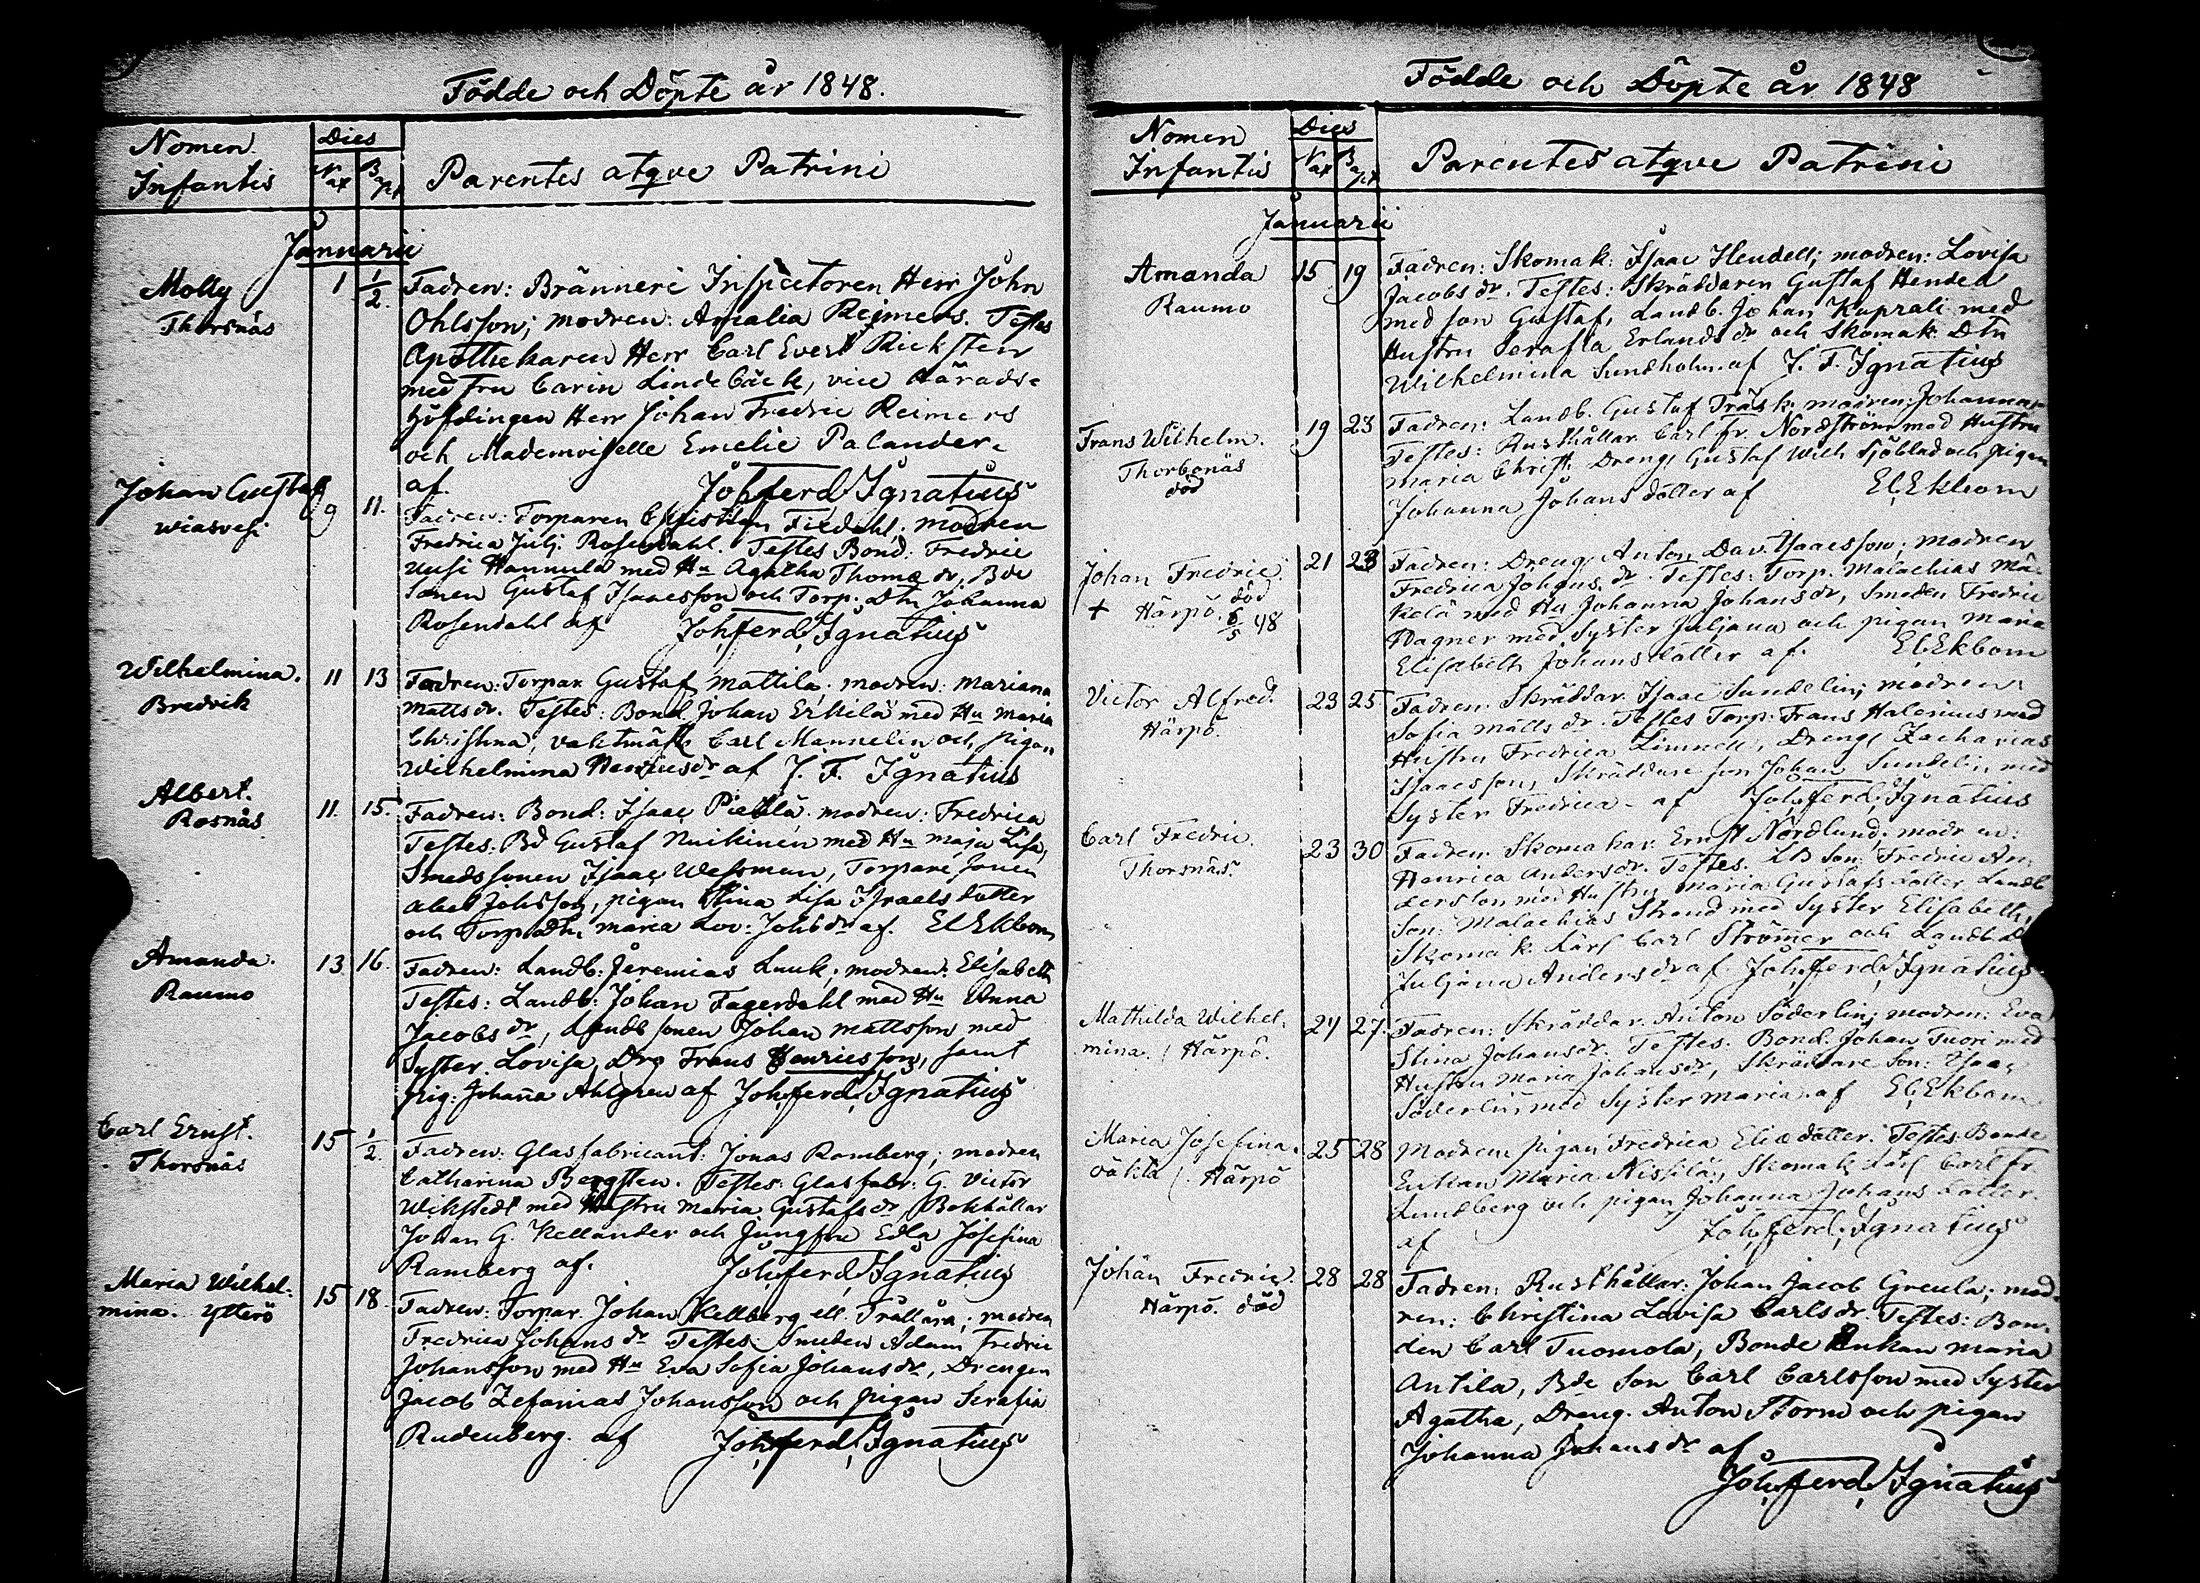 Födde och Döpte år 1848.
Nomen Infantis
Dies
Nat Bapt
Parentes atqve Patrini
Januarii
Molly
Thorsnäs
1 1/2.
Fadren: Bränneri Inspectoren Herr John
Ohlsson; modren: Amalia Reimers. Testes
Apothekaren Herr Carl Evert Ricksten
med Fru Carin Lindebäck, vice Härads-
höfdingen Herr Johan Fredric Reimers
och Mademoiselle Emelie Palander.
af. Joh. Ferd. Ignatius
Johan Gustaf
Wiasvesi
9 11.
Fadren: Torparen Christian Fredahl; modren
Fredrica Julj. Rosendahl. Testes Bond: Fredric
Uusi Hannula med Hu Agatha Thomæ dr, Bde
Sonen Gustaf Isaacsson och Torp. Dtn Johanna
Rosendahl af Joh. Ferd. Ignatius
Wilhelmina.
Bredvik
11 13
Fadren: Torpar. Gustaf Mattila; modren: Mariana
Matts dr. Testes: Bond. Johan Erkilä med Hu Maria
Christina, vaktmäst. Carl Mannelin och pigan
Wilhelmina Henricus dr af J. F. Ignatius
Albert.
Rosnäs
11. 15.
Fadren: Bond: Isaac Pietilä; modren: Fredrica
Testes: Bd Gustaf Nuikinen med Hu Maja Lisa,
Smedssonen Isaac Wessman, Torpare sonen
Abel Johsson, pigan Stina Lisa Israels dotter
och Torp. Dtn Maria Lov: Johs dr af. El Ekbom
Amanda.
Raumo
13 16.
Fadren: Landb: Jeremias Luuk; modren: Elisabeth
Testes: Landb: Johan Fagerdahl med Hu Anna
Jacobs dr, Landb sonen Johan Mattsson med
Syster Lovisa, Drg Frans Henricsson, samt
pig: Johanna Ahlgren af Joh. Ferd. Ignatius
Carl Ernst.
Thorsnäs
15 1/2
Fadren: Glasfabricant: Jonas Ramberg; modren
Catharina Bergsten. Testes: Glasfabr: G. Victor
Wikstedt med Hustru Maria Gustafs dr, Bokhållar
Johan G. Kellander och Jungfru Edla Josefina
Ramberg af. Joh. Ferd. Ignatius
Maria Wilhel-
mina. Ytterö
15 18.
Fadren: Torpar. Johan Kellberg ell. Trållåsa; modren
Fredrica Johans dr Testes: Smeden Adam Fredric
Johansson med Hu Eva Sofia Johans dr, Drengen
Jacob Zefanias Johansson och pigan Serafia
Rudenberg. af Joh. Ferd. Ignatius
Födde och Döpte år 1848
Nomen Infantis
Dies
Nat Bapt
Parentes atqve Patrini
Januarii
Amanda
Raumo
15 19
Fadren: Skomak: Isaac Hendell; modren: Lovisa
Jacobs dr. Testes: Skräddaren Gustaf Hendell
med son Gustaf, Landb. Johan Kaprali med
Hustru Serafia Erlands dr och Skomak Dtn
Wilhelmina Sundholm. af J. F. Ignatius
Frans Wilhelm.
Thorbonäs
död
19 23
Fadren: Landb. Gustaf Träsk; modren: Johanna
Testes: Rusthållar. Carl Fr. Nordström med Hustru
Maria Christ. Dreng. Gustaf Wilh Sjöblad och pigan
Johanna Johans dotter af El. Ekbom
Johan Fredric.
död
+ Härpö. 6/5 48
21 23
Fadren: Dreng. Anton Dav. Isaacsson; modren
Fredrica Johans dr. Testes: Torp. Malachias Mä-
kelä med Hu Johanna Johans dr, Smeden Fredric
Wagner med Syster Juljana och pigan Maria
Elisabeth Johans dotter af. El. Ekbom
Victor Alfred.
Härpö.
23 25
Fadren: Skräddar. Isaac Sundelin; modren:
Sofia Matts dr. Testes Torp: Frans Halenius med
Hustru Fredrica Limnell, Dreng. Zacharias
Isaacsson, Skräddare son Johan Sundelin med
Syster Fredrica. af Joh. Ferd. Ignatius
Carl Fredric.
Thorsnäs.
23 30
Fadren: Skomakar. Ernst Nordlund; modren:
Henrica Anders dr. Testes. LB Son: Fredric An-
dersson med Hustru Maria Gustafs dotter Landb
Son: Malachias Strand med Syster Elisabeth,
Skomak. Lärl Carl Strömer och Landb. D
Juljana Anders dr af. Joh. Ferd. Ignatius
Mathilda Wilhel-
mina. / Härpö.
24 27.
Fadren: Skräddar. Anton Söderlin; modren: Eva
Stina Johans dr. Testes: Bond: Johan Tuori med
Hustru Maria Johans dr, Skräddare Son: Isaac
Söderlin med Syster Maria. af El. Ekbom
Maria Josefina.
oäkta / Härpö
25 28
Modren: pigan Fredrica Eliæ dotter. Testes: Bonde
Enkan Maria Nissilä, Skomak Lärl Carl Fr.
Lundberg och pigan Johanna Johans dotter.
af Joh. Ferd. Ignatius
Johan Fredric.
Härpö. död
28 28
Fadren: Rusthållar: Johan Jacob Greula; mod-
ren: Christina Lovisa Carls dr. Testes: Bon-
den Carl Tuomola, Bonde Enkan Maria
Antila, Bde Son Carl Carlsson med Syster
Agatha, Dreng. Anton Storm och pigan
Johanna Johans dr af
Joh. Ferd. Ignatius